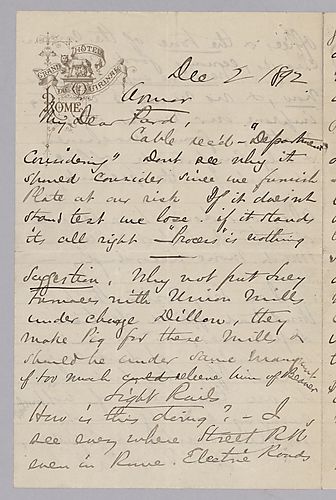 GRAND HÔTEL
DU QUIRINAL
ROME
Dec 2 1892
Armor
My Dear Ford,
Cable rec'd - "Department
Considering" Dont see why it
should consider since we furnish
Plate at our risk If it doesnt
stand test we lose - if it stands
its all right - "Process" is nothing
Suggestion, Why not put Lucy
Furnaces with Union Mills
under charge Dillon, they
make Pig for these Mills &
should be under same Managmt
if too much relieve him of Beaver
Light Rails
How is this doing? - I
see every where Street RR
even in Rome. Electric Roads